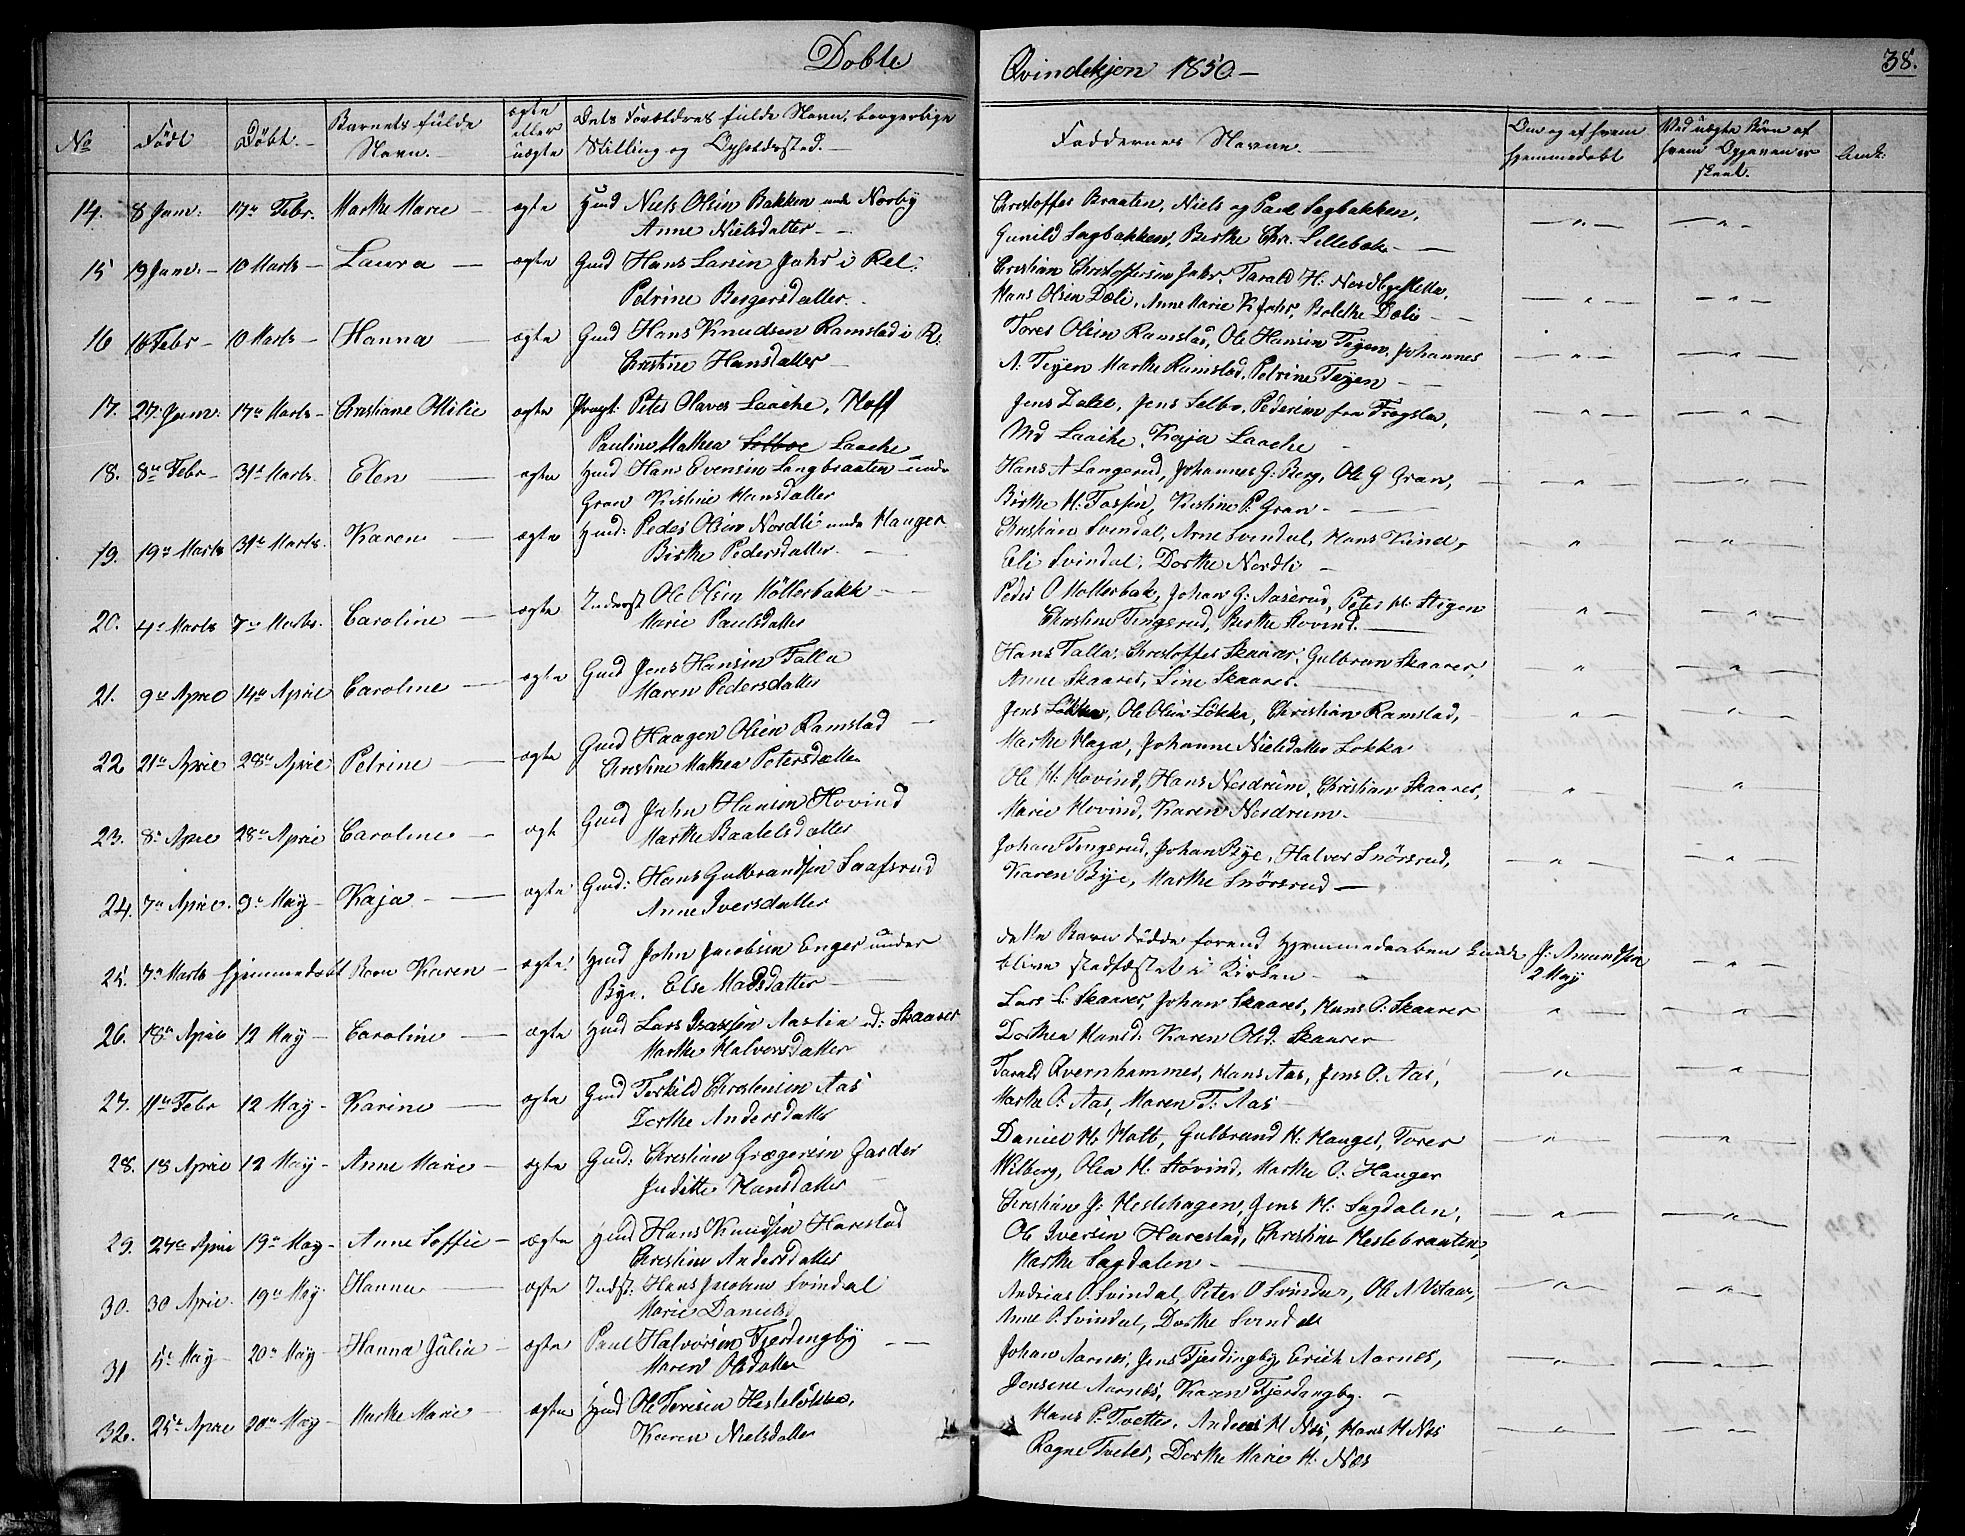 Døbte
Qvindekjøn 1850.-
38.
No
Født
Døbt.-
Barnets fulde Navn.-
ægte eller uægte
Dets Forældres fulde Navn, borgerlige Stilling og Opholdssted.-
Faddernes Navne.
Om og af hvem hjemmedøbt
Ved uægte Børn af hvem Opgaven er skeet.
Anm:
14. 8 Janr. 17de Febr. Marthe Marie - ægte Huusmd Niels Olsen Bakken under Norby
Anne Nielsdatter -
Christoffer Braaten, Niels og Paul Sagbakken,
Gunild Sagbakken, Berthe Chr. Lillebæk -
15 19 Janr. - 10 Marts - Laura - ægte Gmd Hans Larsen Jahr i Rel:
Petrine Bergersdatter.
Christian Christoffersen Jahr, Tarald H: Nordbysletta,
Hans Olsen Dæli, Anne Marie K Jahr, Bolethe Dæli -
16 16 Febr - 10 Marts - Hanna - ægte Gmd Hans Knudsen Ramstad i R.
Christine Hansdatter -
Tores Olsen Ramstad, Ole Hansen Teyen, Johannes
A. Teyen Marthe Ramstad, Petrine Teyen -
17. 27. Janr. 17de Marts - Christiane Ottilie ægte Peter Olaves Laache, Hoff
Pauline Mathea Selboe Laache
Jens Selbo, Pedersen fra Frogstar,
Md Laache, Kaja Laache -
18. 8de Febr - 31te Marts. Elen - ægte Hmd Hans Evensen Langbraaten under
Gran Kirstine Hansdatter
Hans A Langerud, Johannes G. Berg, Ole G Gran,
Birthe H. Fossen, Kirstine P. Gran -
19. 19de Marts 31te Marts. Karen - ægte Hmd: Peder Olsen Nordli under Hauger
Birthe Pedersdatter. -
Christian Svindal, Arne Svindal, Hans Kind,
Eli Svindal, Dorthe Nordli -
20. 4de Marts 7de Marts. Caroline - ægte Inderst Ole Olsen Møllerbakk -
Marie Paulsdatter
Peder O Møllerbak, Johan G. Aaserud, Peter H. Stigen
Christine Tingsrud, Berthe Hovind. -
21. 9de April 14de April Caroline - ægte Gmd Jens Hansen Falla
Maren Pedersdatter
Hans Falla, Christoffer Skaarer, Gulbran Skaarer,
Anne Skaarer, Line Skaarer. -
22 21de April 28de April Petrine - ægte Gmd Haagen Olsen Ramstad -
Christine Mathea Petersdatter
Jens Løkka, Ole Olsen Løkka, Christian Ramstad,
Marthe Haga, Johanne Nielsdatter Løkka
23. 8de April 28de April Caroline - ægt Gmd John Hansen Hovind
Marthe Baatelsdatter
Ole H: Hovind, Hans Nordrum, Christian Skaarer,
Marie Hovind, Karen Nordrum -
24. 7de April. 9de May - Kaja - ægte Gmd: Hans Gulbrandsen Saafsrud
Anne Iversdatter
Johan Tingsrud, Johan Bye, Halvor Snørsrud,
Karen Bye, Marthe Snørsrud -
25. 7de Marts hjemmedøbt Karen - ægte. Hmd John Jacobsen Enger under
Bye. Else Madsdatter -
dette Barn døde forend Hjemmedaaben kunde
blive stadfæstet i Kirken -
J. Amundsen
2 May
26. 18de April 12 May - Caroline - ægte Hmd Lars Isaksen Aastia ud: Skaarer
Marthe Halvorsdatter
Lars L: Skaarer, Johan Skaarer, Hans O. Skaarer
Dorthea Hansd: Karen Olsd. Skaarer
27. 11de Febr 12 May - Karine - ægte Gmd Terkild Christensen Aas
Dorthe Andersdatter
Tarald Qvernhammer, Hans Aas, Jens O. Aas,
Marthe O. Aas, Maren T. Aas
28. 18 April 12 May - Anne Marie - ægte Gmd: Christian Grægersen Garder
Juditte Hansdatter -
Daniel H. Holt, Gulbrand H. Hauger, Torer
Wilberg, Olea H. Høvind, Marthe O. Hauger
29. 27de April 19de May - Anne Soffie - ægte Hmd Hans Knudsen Harestad
Christine Andersdatter
Christian J. Heslehagen, Jens H. Sagdalen,
Ole Iversen Harestad, Christine Heslebraaten,
Marthe Sagdalen -
30. 30 April. 19de May Hanna - ægte Indst: Hans Jacobsen Svindal
Marie Danielsd
Andrias O. Svindal, Peter O Svindal,
Anne O. Svindal, Dorthe Svindal
31 5te May - 20de May - Hanna Julia - ægte Paul Halvorsen Fjerdingby -
Maren Olsdatter
Johan Aarnes, Jens Fjerdingby, Erich Aarnes,
Jensene Aarnes, Karen Fjerdingby. -
32. 25de April 20de May - Marthe Marie - ægte Hmd Ole Toresen Hesteløkka,
Karen Nielsdatter
Hans P. Tveter, Anders H Næs, Hans H Næs
Ragne Tveter, Dorthe Marie H. Næs